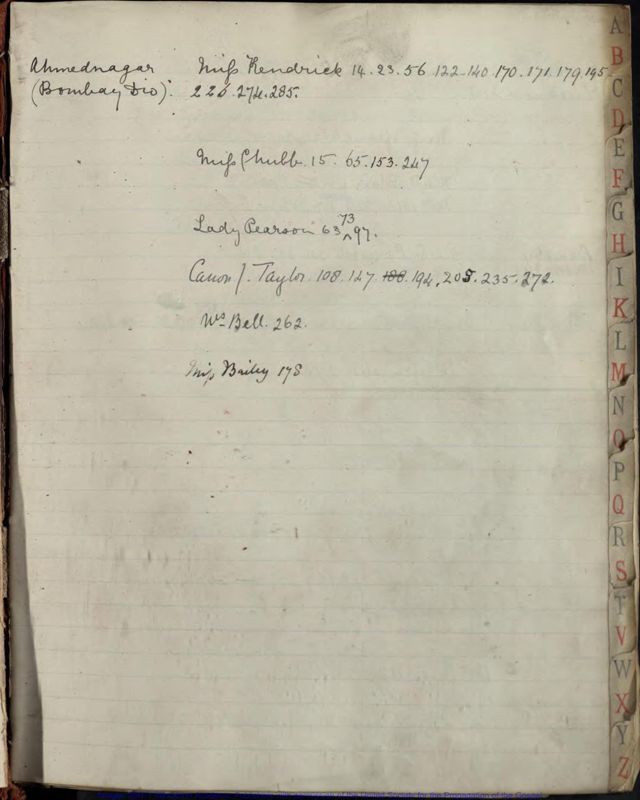 Ahmednagar Miss Kendrick 14. 23. 56. 122. 140. 170. 171. 179. 195.
(Bombay Dio). 226. 274. 285.
Miss Chubb. 15. 65. 153. 247
Lady Pearson 63 73 ^ 97.
Canon J. Taylor. 108. 147 188. 194, 205. 235. 272.
Ws Bell. 262.
Miss Bailey 178
A
B
C
D
E
F
G
H
I
K
L
M
N
O
P
Q
R
S
T
V
W
X
Y
Z